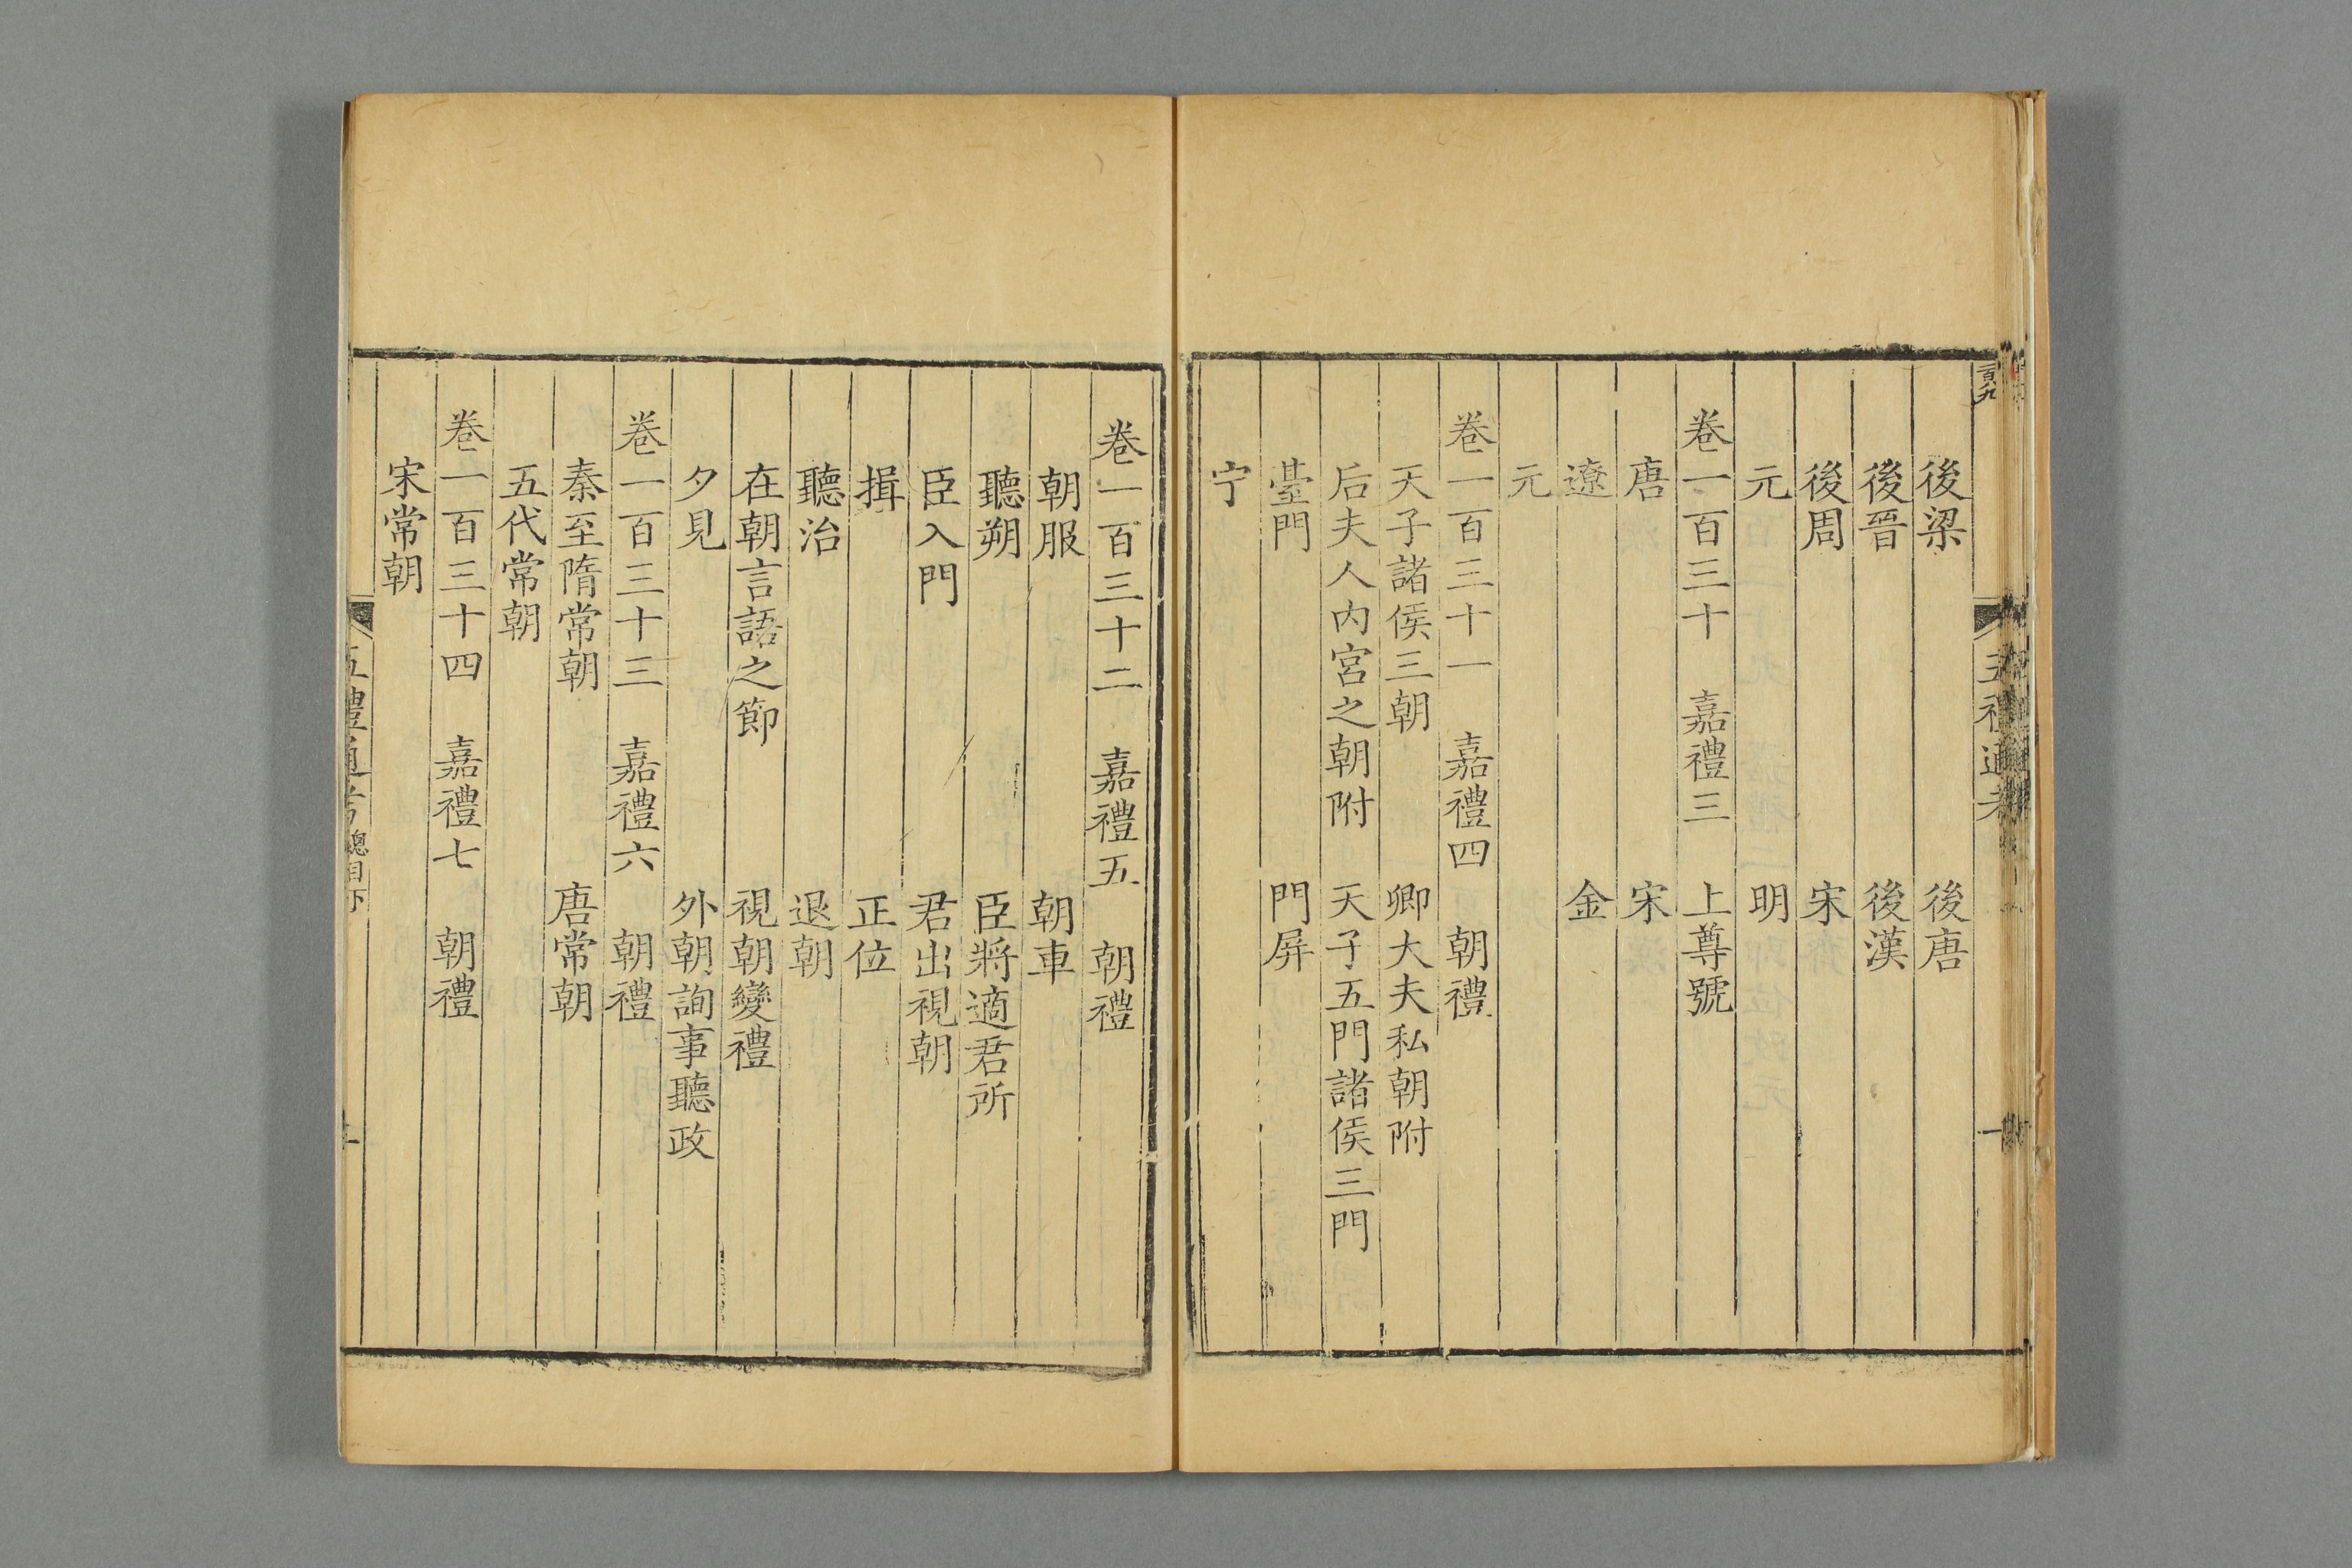 後梁　後唐
後晉　後漢
後周　宋
元　明
卷一百三十　嘉禮三　上尊號
唐　宋
遼　金
元
卷一百三十一　嘉禮四　朝禮
天子諸侯三朝　卿大夫私朝附
后夫人內宮之朝附　天子五門諸侯三門
臺門　門屏
宁
卷一百三十二　嘉禮五　朝禮
朝服　朝車
聽朔　臣將適君所
臣入門　君出視朝
揖　正位
聽治　退朝
在朝言語之節　視朝變禮
夕見　外朝詢事聽政
卷一百三十三　嘉禮六　朝禮
秦至隋常朝　唐常朝
五代常朝
卷一百三十四　嘉禮七　朝禮
宋常朝
五禮通考總目下